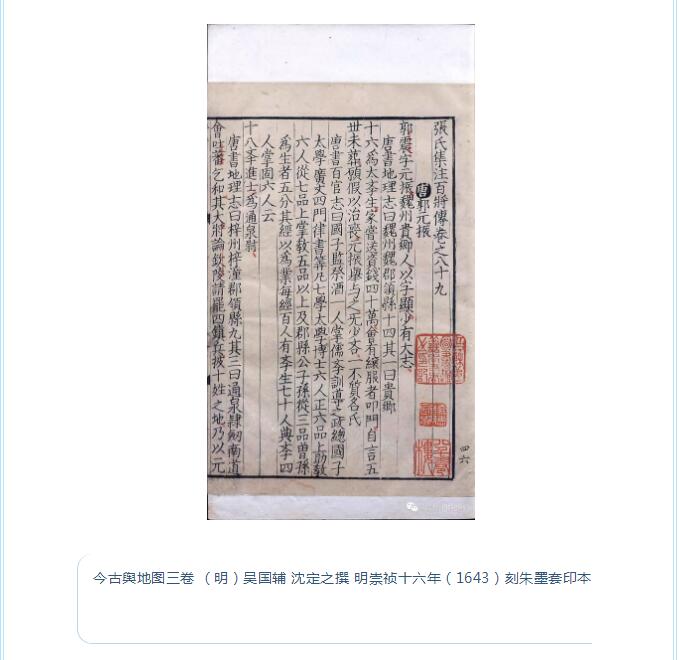 張氏集注百將傳卷之八十九
唐 郭元振
郭震字元振魏州貴鄉人以字顯少有大志
唐書地理志曰魏州魏郡領縣十四其一曰貴鄉
十六爲太斈生家嘗送資錢四十萬會有縗服者叩門自言五
世未葬願假以治喪元振舉与之无少吝一不質名氏
唐書百官志曰國子監祭酒一人掌儒斈訓導之政總國子
太學廣文四門律書筭凡七學太學博士六人正六品上助敎
六人從七品上掌敎五品以上及郡縣公子孫從三品曽孫
爲生者五分其經以爲業每經百人有斈生七十人典斈四
人掌固六人云
十八斈進士爲通泉尉
唐書地理志曰梓州梓潼郡領縣九其三曰通泉隸劒南道
會吐蕃乞和其大將論欽陵請罷四鎮兵披十姓之地乃以元
四六
今古舆地图三卷 （明）吴国辅 沈定之撰 明崇祯十六年（1643）刻朱墨套印本